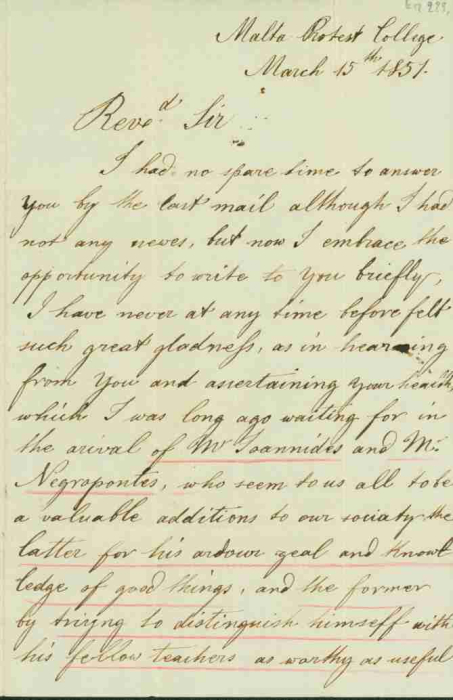 Malta Protest College
March 15th 1851.
Reved Sir
I had no spare time to answer
you by the last mail although I had
not any newes, but now I embrace the
opportunity to write to you briefly,
I have never at any time before felt
such great gladness, as in hearning
from you and assertaining your health,
which I was long ago waiting for in
the arival of Mr Ioannides and Mr
Negropontes, who seem to us all to be
a valuable additions to our sociaty the
latter for his ardour zeal and know
ledge of good things, and the former
by triyng to distinguish himself with
his fellow teachers as worthy as useful